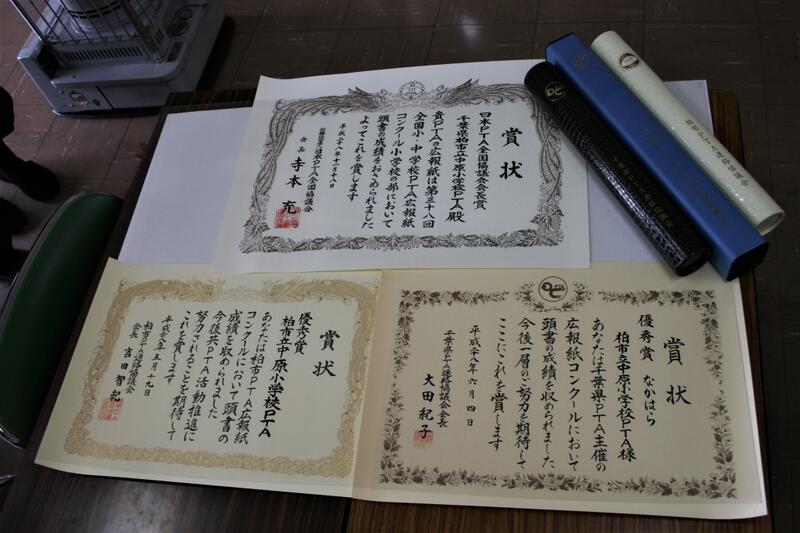 賞状
日本PTA全国協議会会長賞
千葉県柏市立中原小学校PTA殿
貴PTAの広報紙は第三十八回
全国小・中学校PTA広報紙
コンクール小学校の部において
頭書の成績をおさめられました
よってこれを賞します
平成二十八年十一月十八日
日本PTA全国協議会
会長 寺本 充
賞状
優秀賞
柏市立中原小学校PTA
あなたは柏市PTA広報紙
コンクールにおいて頭書の
成績を収められました
今後共PTA活動推進に
努力されることを期待して
これを賞します
平成二十八年五月十九日
柏市PTA連絡協議会
会長 吉田 智紀
賞状
優秀賞 なかはら
柏市立中原小学校PTA様
あなたは千葉県PTA主催の
広報紙コンクールにおいて
頭書の成績を収められました
今後一層のご努力を期待して
ここにこれを賞します
平成二十八年六月四日
千葉県PTA連絡協議会会長
大田 紀子